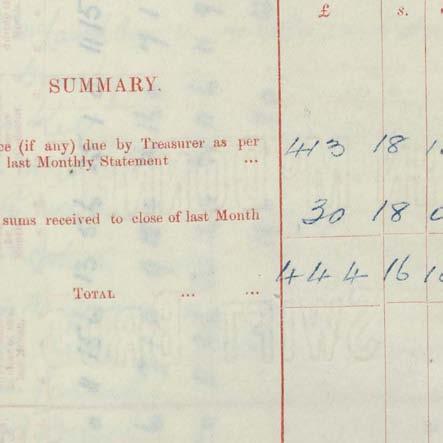 £ s.
SUMMARY.
ce (if any) due by Treasurer as per
last Monthly Statement ... 413 18
sums received to close of last Month 30 18
TOTAL ... ... 444 16